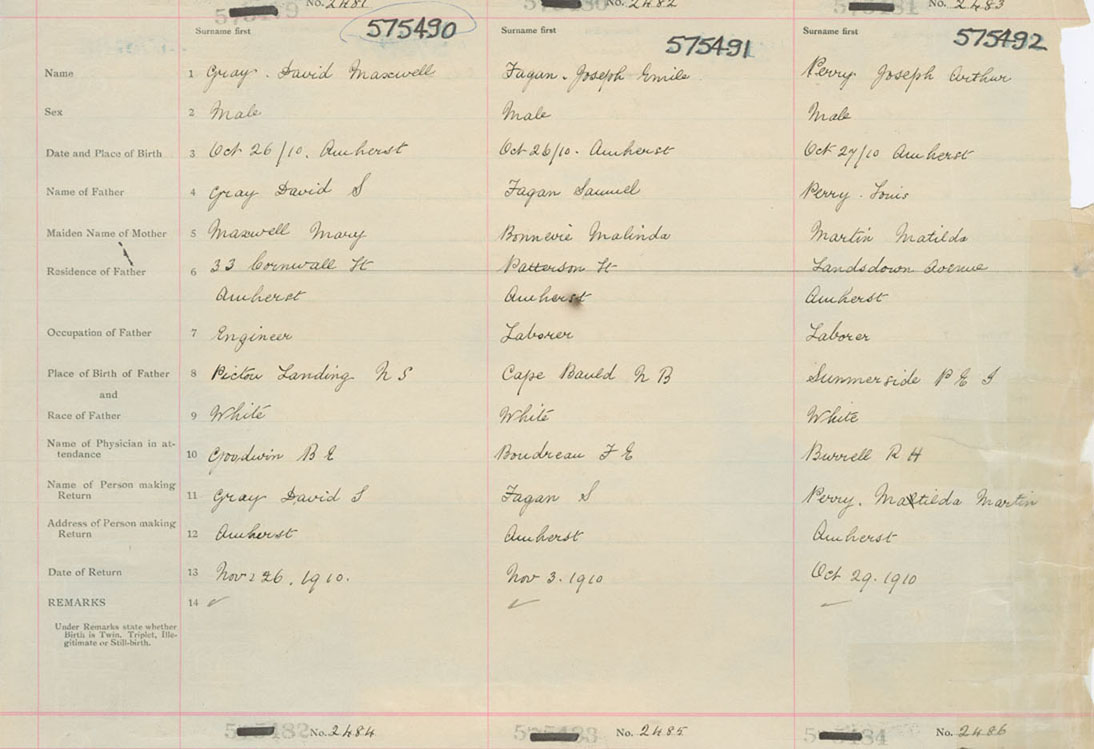 No. 2481 No. 2482 No. 2483
575490 575491 575492
Surname first Surname first Surname first
Name 1 Gray. David Maxwell Fagan. Joseph Emile Perry Joseph Arthur
Sex 2 Male Male Male
Date and Place of Birth 3 Oct 26/10. Amherst Oct 26/10. Amherst Oct 27/10 Amherst
Name of Father 4 Gray David S Fagan Samuel Perry. Louis
Maiden Name of Mother 5 Maxwell Mary Bonnevie Malinda Martin Matilda
Residence of Father 6 33 Cornwall St Patterson St Landsdown Avenue
Amherst Amherst Amherst
Occupation of Father 7 Engineer Laborer Laborer
Place of Birth of Father 8 Pictou Landing N S Cape Bauld N B Summerside P E I
and
Race of Father 9 White White White
Name of Physician in at-
tendance 10 Goodwin B E Boudreau F E Burrell R H
Name of Person making
Return 11 Gray David S Fagan S Perry. Matilda Martin
Address of Person making
Return 12 Amherst Amherst Amherst
Date of Return 13 Nov 26. 1910. Nov 3. 1910 Oct 29. 1910
REMARKS 14
Under Remarks state whether
Birth is Twin, Triplet, Ille-
gitimate or Still-birth.
No. 2484 No. 2485 No. 2486